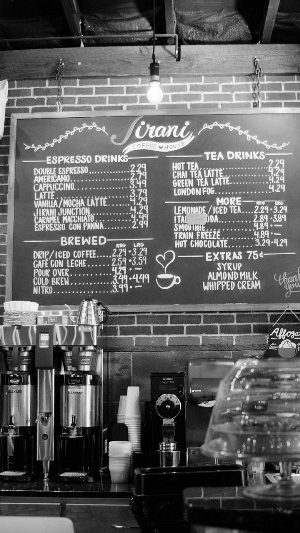 Jirani
COFFEE HOUSE
ESPRESSO DRINKS
DOUBLE ESPRESSO 2.29
AMERICANO 2.79
CAPPUCCINO 3.49
LATTE 3.79
VANILLA/MOCHA LATTE 4.29
JIRANI JUNCTION 4.79
CARAMEL MACCHIATO 4.99
ESPRESSO CON PANNA 2.99
BREWED
REG LRG
DRIP/ICED COFFEE 2.29 • 3.29
CAFÉ CON LECHE 2.59 • 3.59
POUR OVER 4.29 • —
COLD BREW 3.99 • 4.49
NITRO 3.99 • —
TEA DRINKS
HOT TEA 2.29
CHAI TEA LATTE 4.29
GREEN TEA LATTE 4.29
LONDON FOG 4.29
MORE
REG LRG
LEMONADE/ICED TEA 2.29 • 3.29
SMOOTHIE 4.89 • —
TRAIN FREEZE 4.89 • —
HOT CHOCOLATE 3.29 • 4.29
EXTRAS 75¢
SYRUP
ALMOND MILK
WHIPPED CREAM
thank you